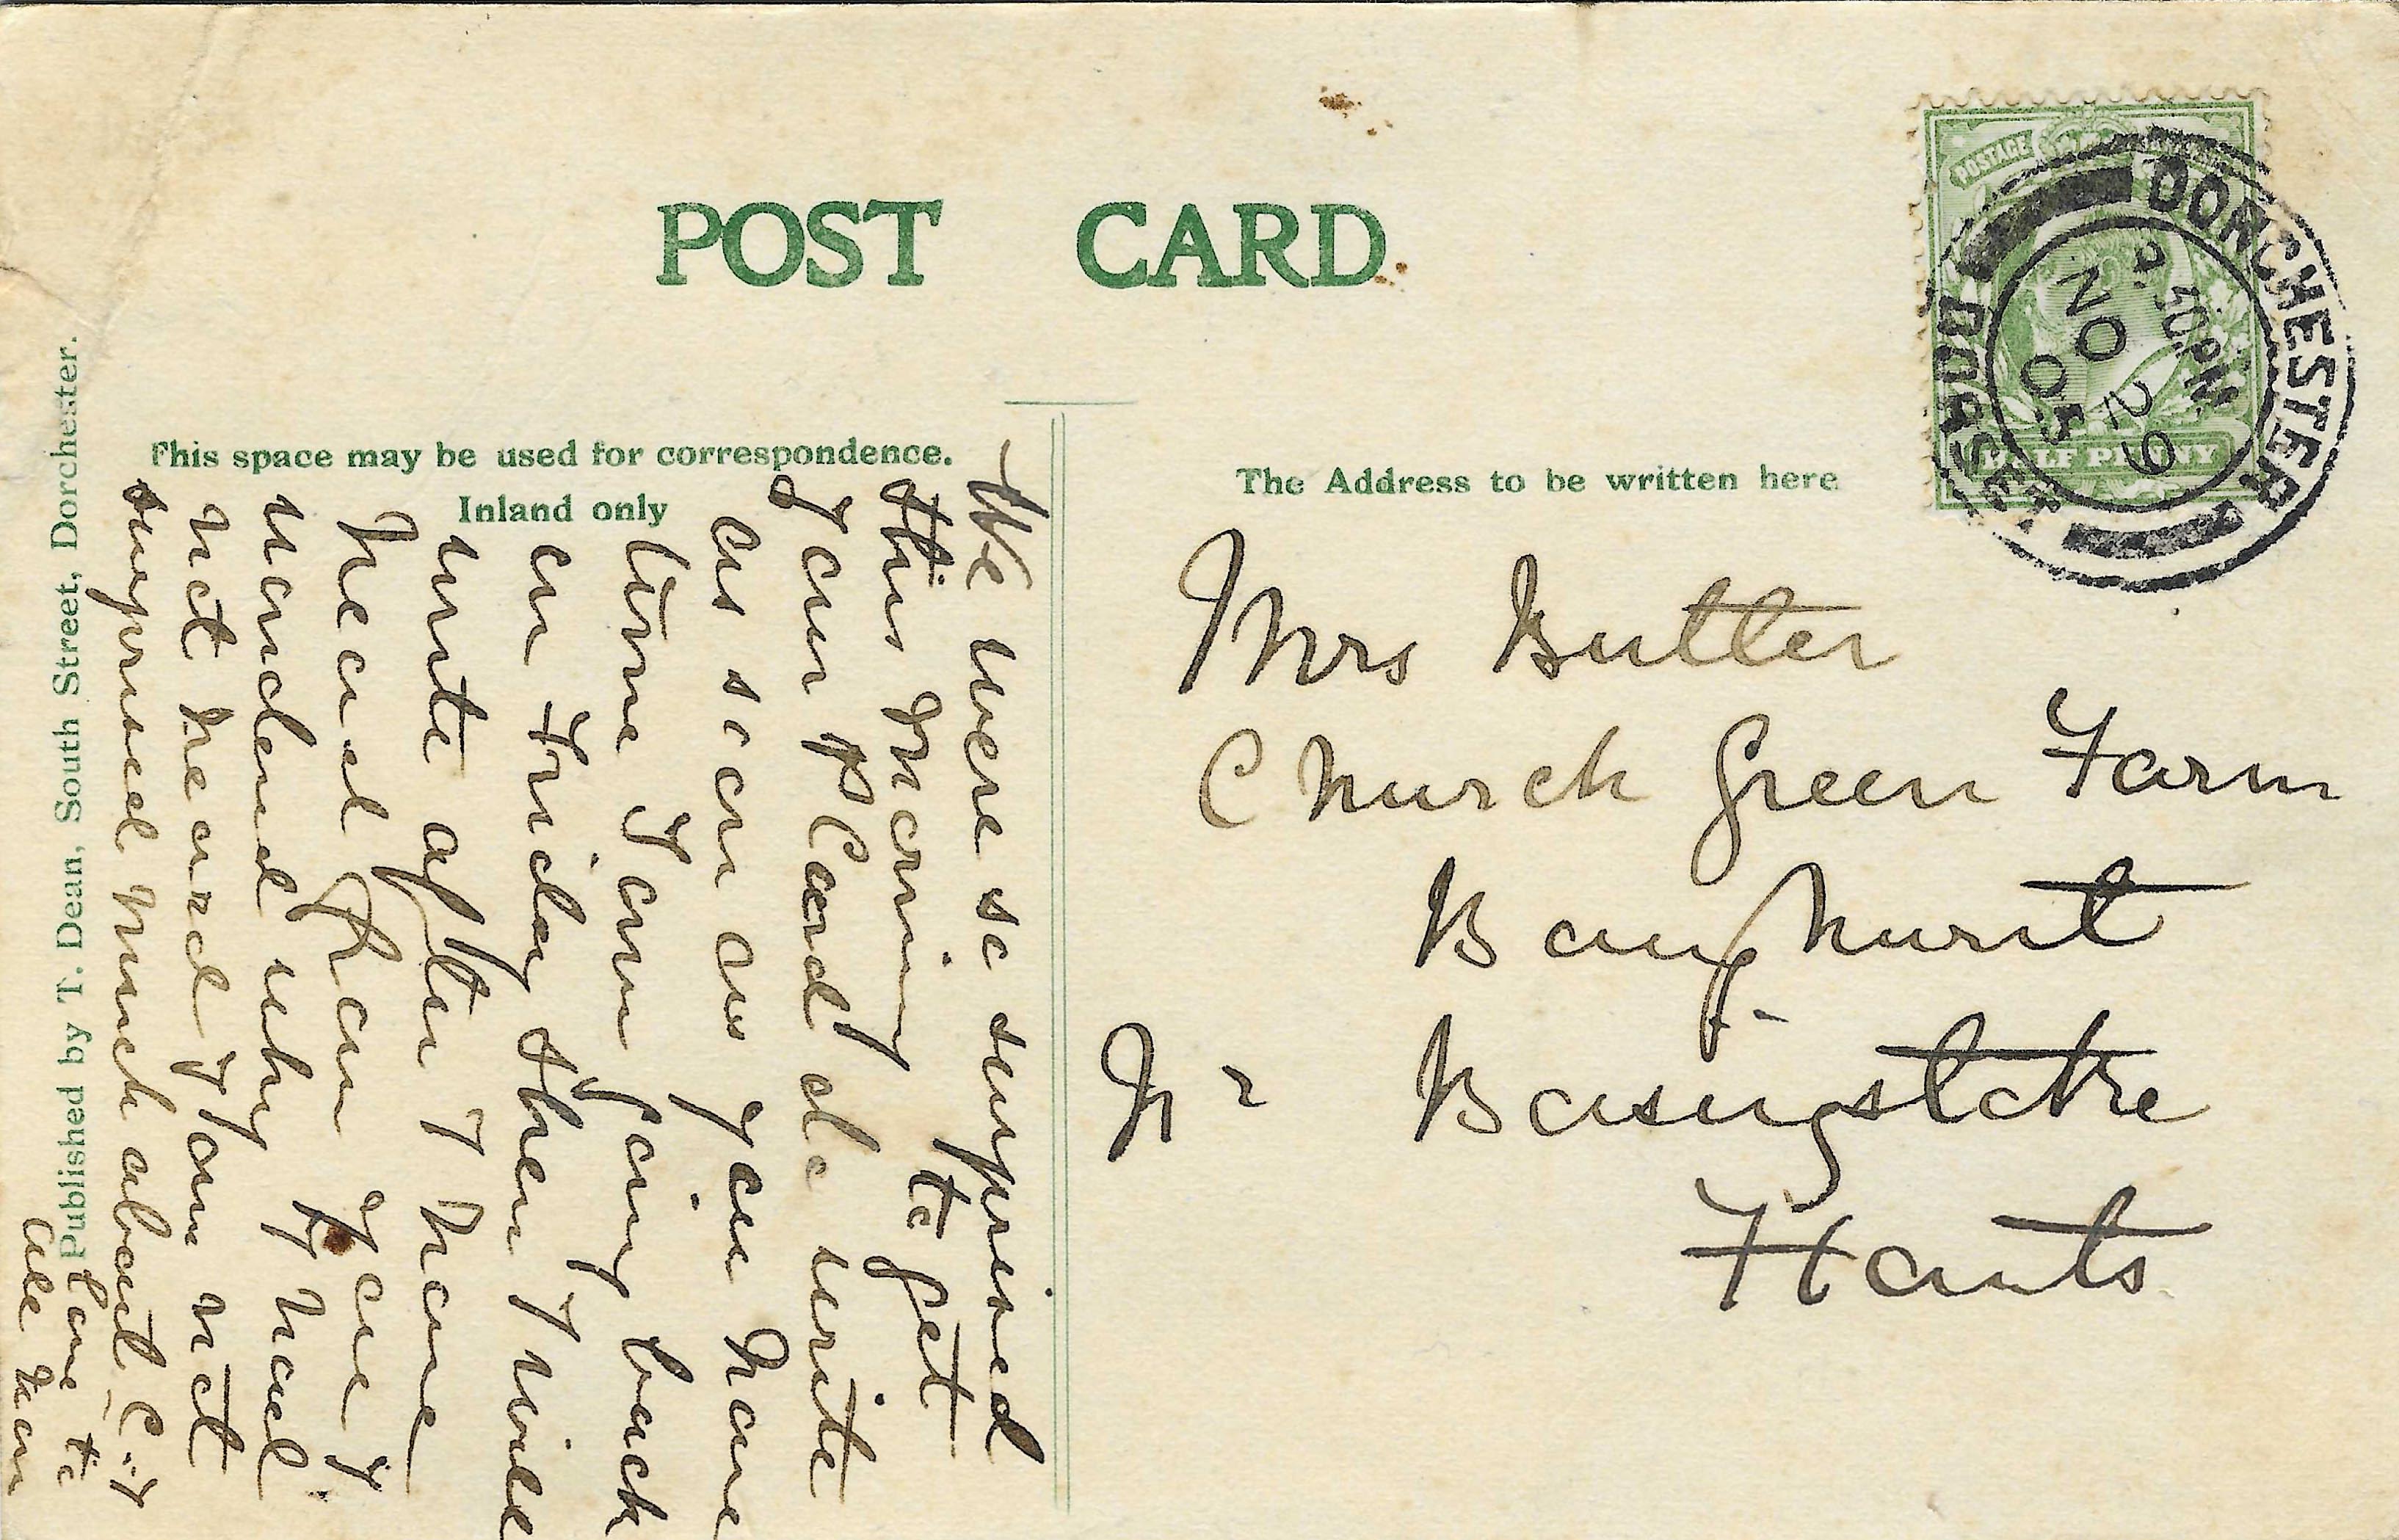 POST CARD
This space may be used for correspondence.
Inland only
The Address to be written here
Published by T. Dean, South Street, Dorchester.
POSTAGE
HALF PENNY
DORCHESTER
50 PM
NO 29
05
DORSET.
Mrs Butter
Church Green Farm
Baughurst
Nr Basingstoke
Hants
We were so surprised
this morning to get
your P Card do write
as soon as you have
time I am going back
on Friday then I will
write after I have
heard from you I
wondered why I had
not heard I am not
surprised much about C. I
love to
all from